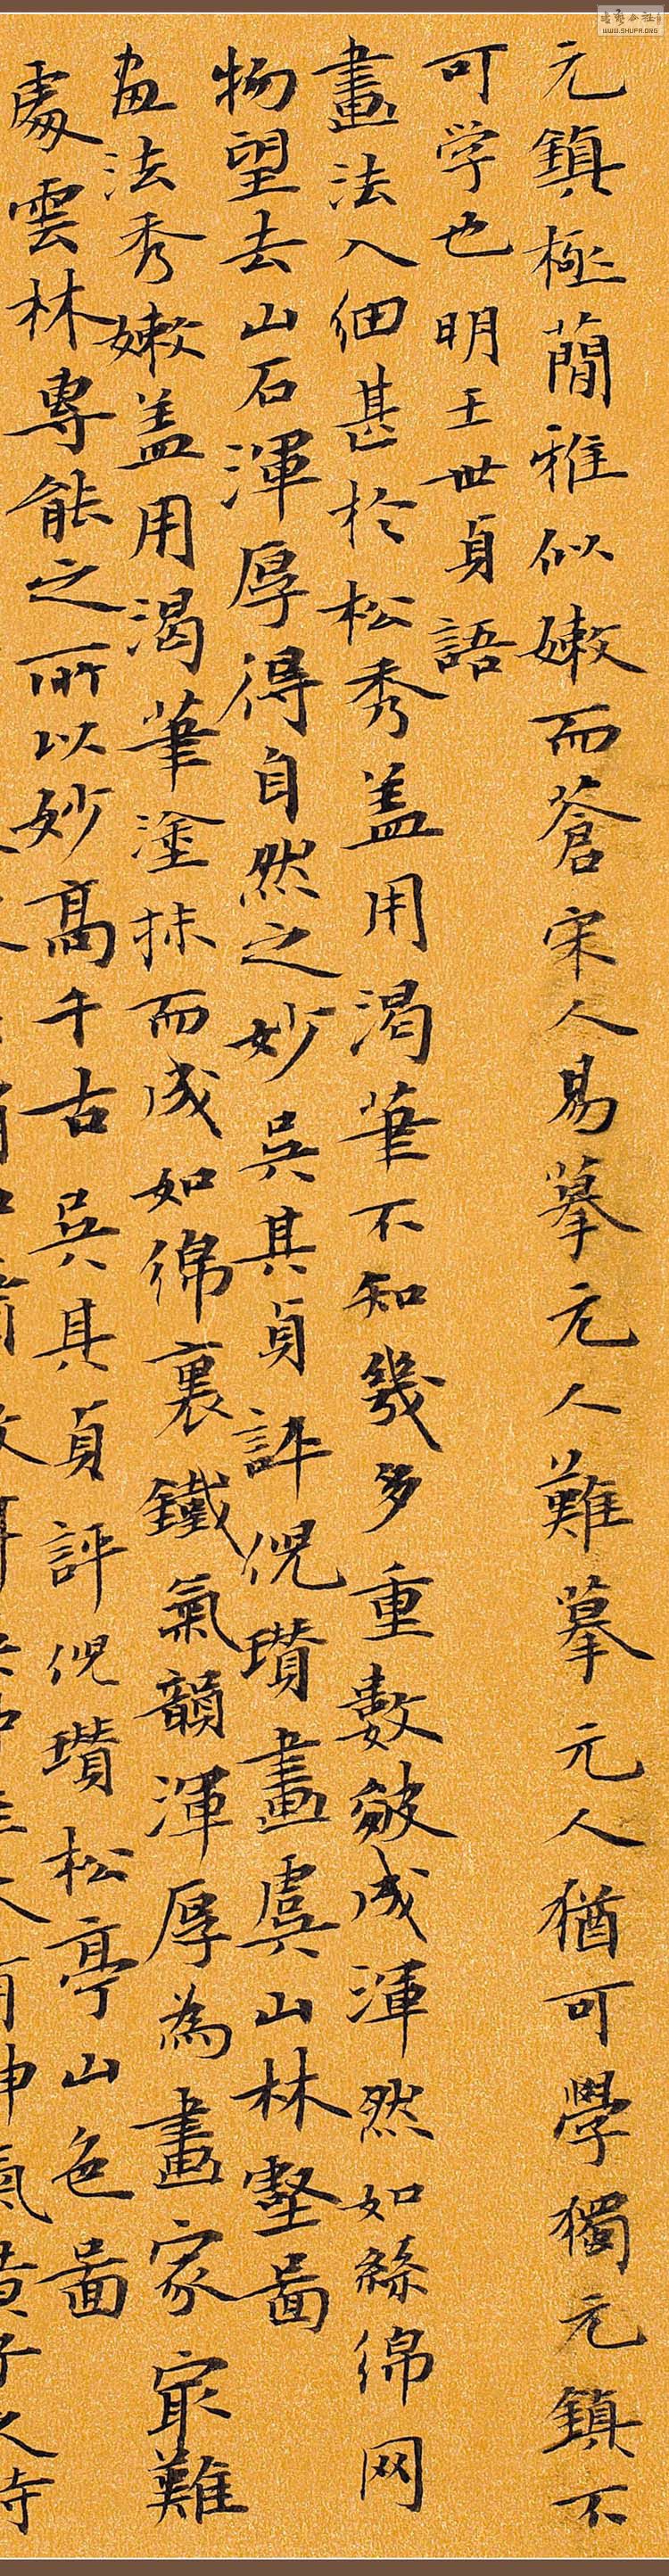 元鎮極簡雅似嫩而蒼宋人易摹元人難摹元人猶可學獨元鎮不
可学也 明王世貞語
畫法入细甚於松秀盖用渴筆不知幾多重數皴成渾然如絲綿网
物望去山石渾厚得自然之妙 吳其貞評倪瓚畫虞山林壑啚
畫法秀嫩盖用渴筆塗抹而成如綿裏鐵氣韻渾厚為畫家最難
處雲林專能之所以妙高千古 吳其貞評倪瓚松亭山色啚
書藝公社
WWW.SHUFA.ORG